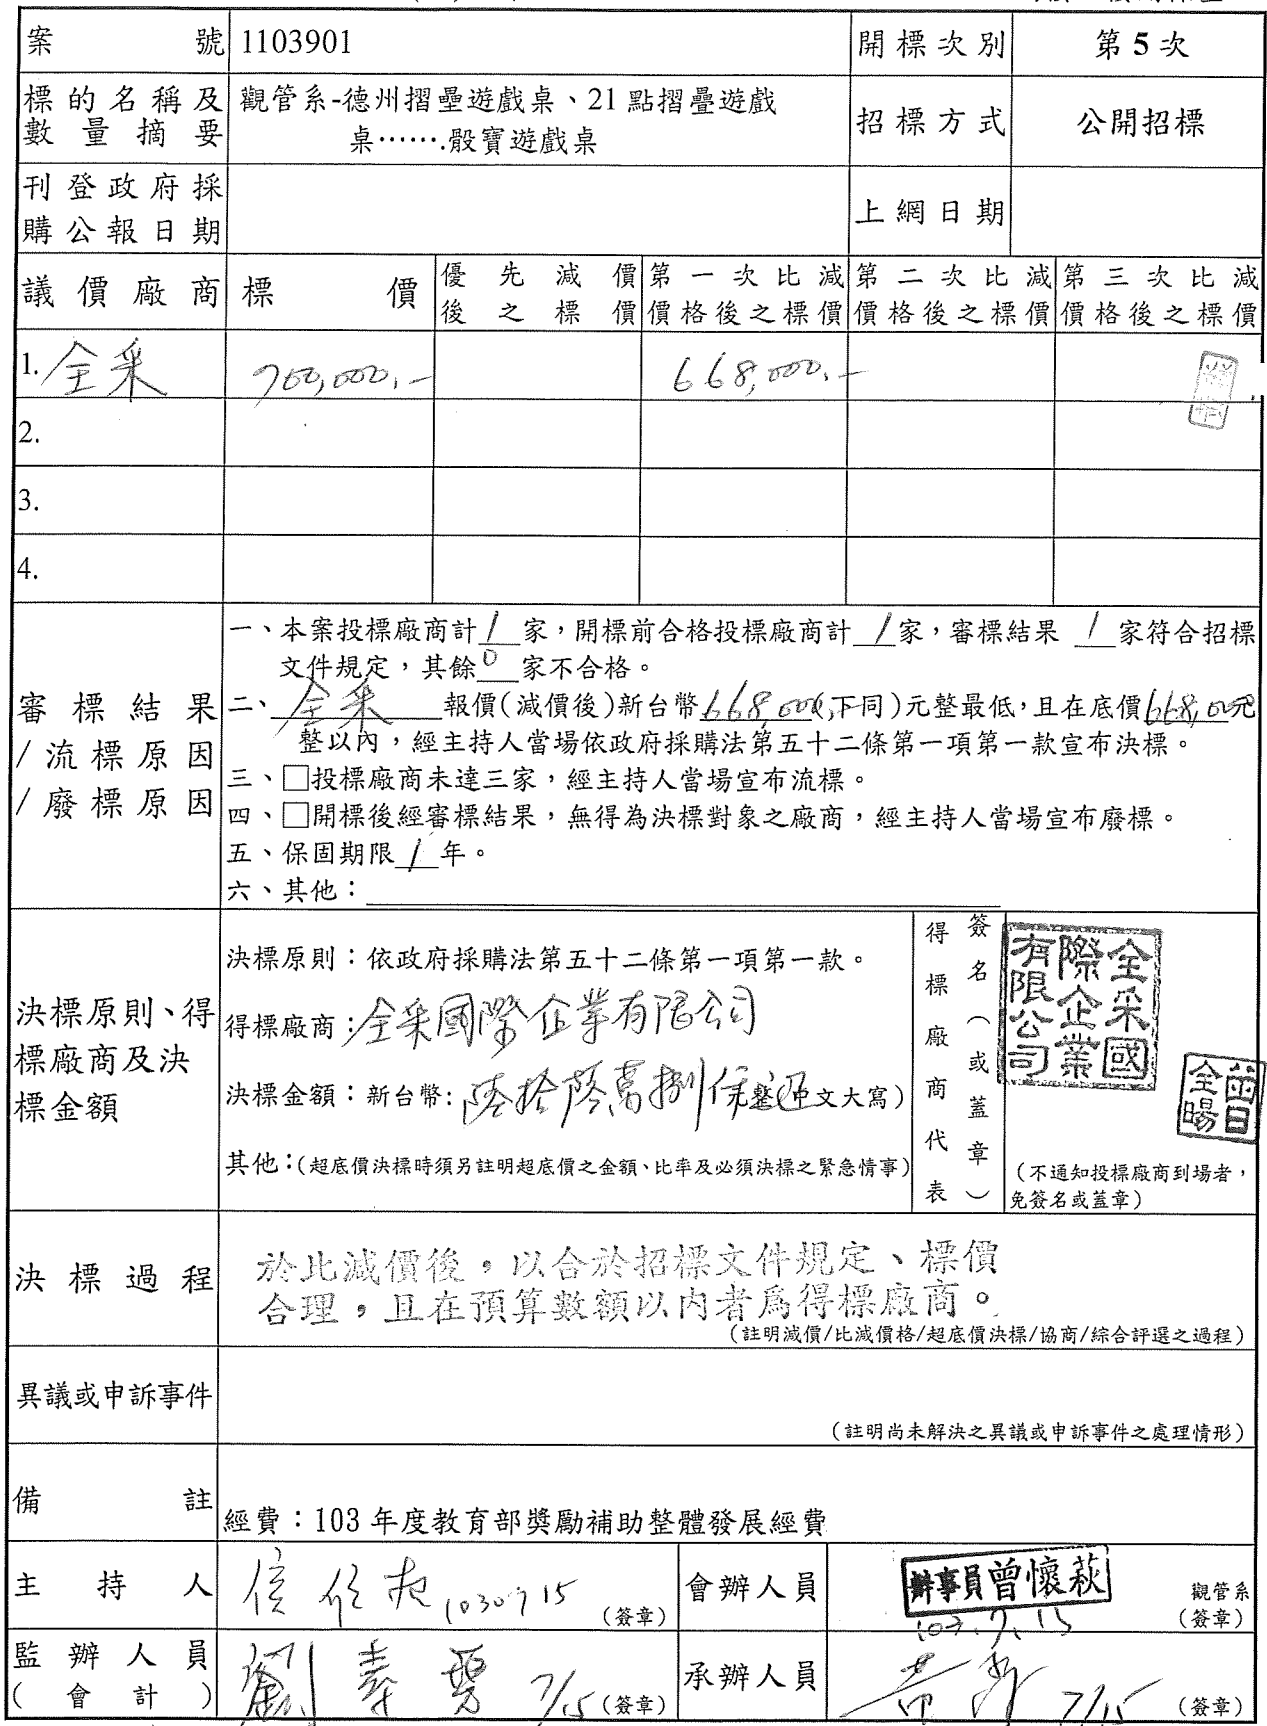 案 號 1103901 開標次別 第 5 次
標的名稱及 觀管系-德州摺疊遊戲桌、21 點摺疊遊戲
數量摘要 桌⋯⋯.骰寶遊戲桌 招標方式 公開招標
刊登政府採
購公報日期 上網日期
議價廠商 標價 優先減價 第一次比減 第二次比減 第三次比減
後之標價 價格後之標價 價格後之標價 價格後之標價
1. 全采 700,000.- 668,000.-
2.
3.
4.
審標結果
/流標原因
/廢標原因
一、本案投標廠商計 1 家，開標前合格投標廠商計 1 家，審標結果 1 家符合招標
文件規定，其餘 0 家不合格。
二、全采 報價(減價後)新台幣 668,000(下同)元整最低，且在底價 668,000元
整以內，經主持人當場依政府採購法第五十二條第一項第一款宣布決標。
三、□投標廠商未達三家，經主持人當場宣布流標。
四、□開標後經審標結果，無得為決標對象之廠商，經主持人當場宣布廢標。
五、保固期限 1 年。
六、其他：
決標原則、得
標廠商及決
標金額
決標原則：依政府採購法第五十二條第一項第一款。
得標廠商：全采國際企業有限公司
決標金額：新台幣:陸拾陸萬捌仟元整(中文大寫)
其他：(超底價決標時須另註明超底價之金額、比率及必須決標之緊急情事)
得標廠商代表
簽名（或蓋章）
全采國
際企業
有限公司
(不通知投標廠商到場者，
免簽名或蓋章)
決標過程
於比減價後，以合於招標文件規定、標價
合理，且在預算數額以內者為得標廠商。
(註明減價/比減價格/超底價決標/協商/綜合評選之過程)
異議或申訴事件
(註明尚未解決之異議或申訴事件之處理情形)
備 註
經費：103 年度教育部獎勵補助整體發展經費
主持人 1030715 (簽章) 會辦人員 辦事員曾懷萩 觀管系
103.7.15 (簽章)
監辦人員
(會計) 7/15 (簽章) 承辦人員 7/15 (簽章)